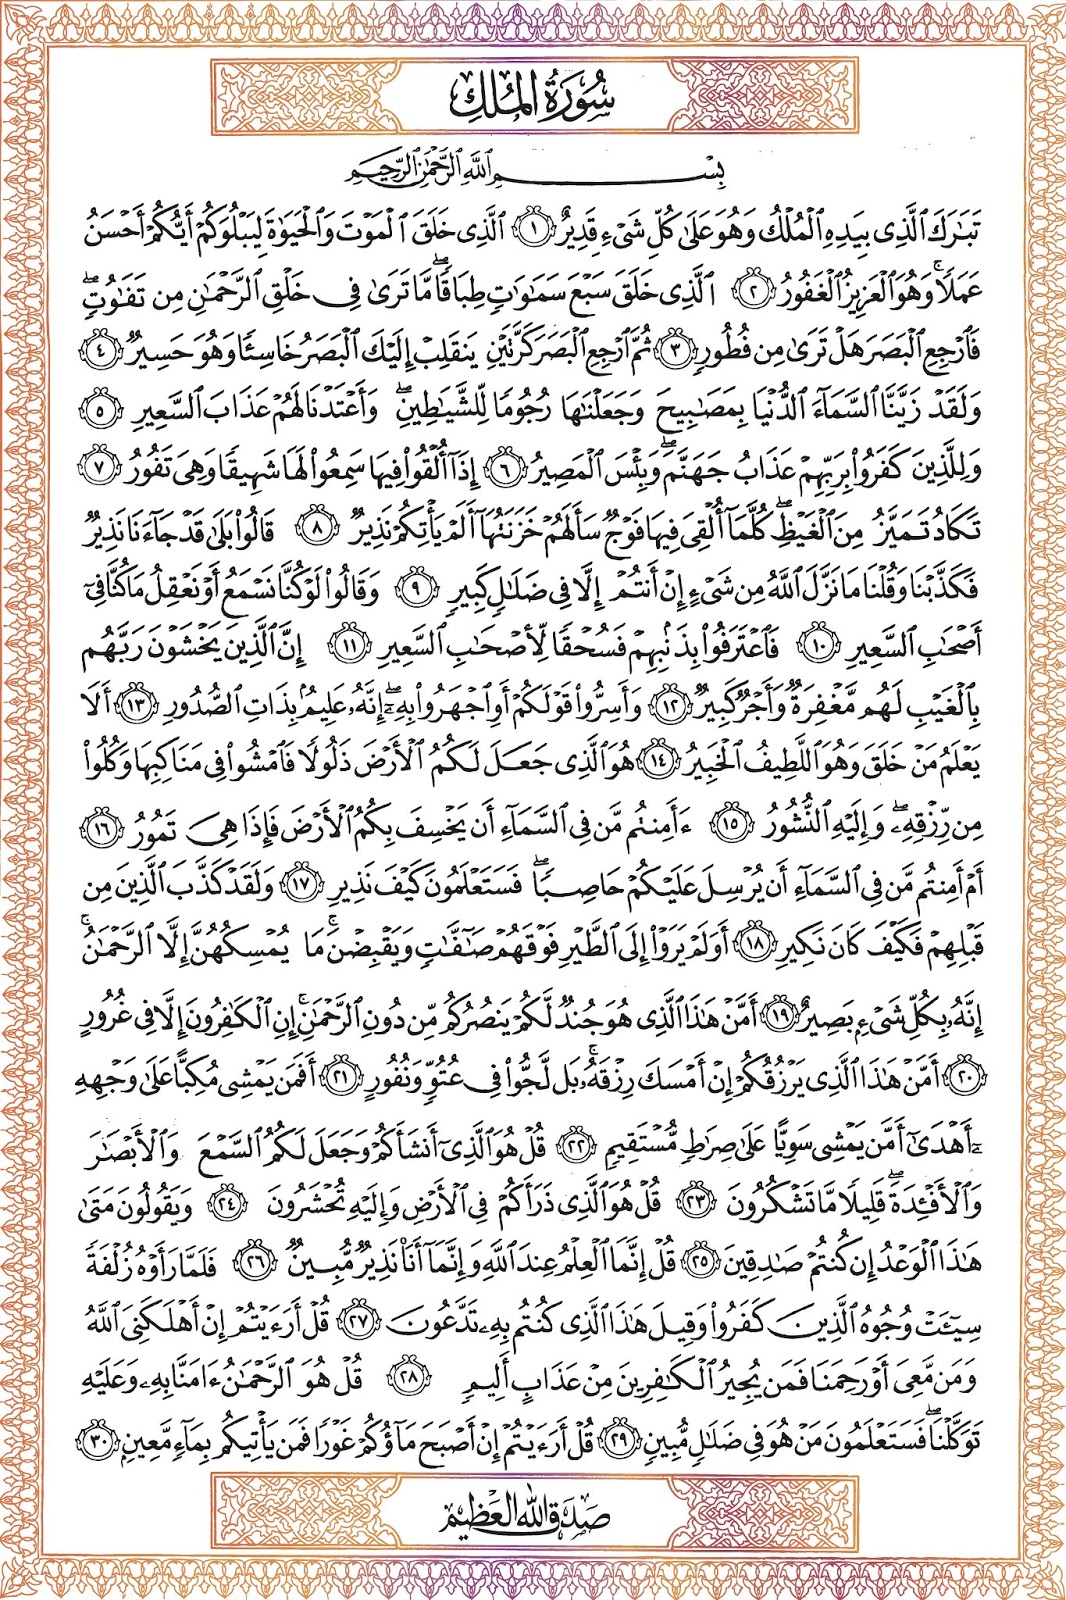 سُورَةُ المُلكِ
بِسْمِ ٱللَّهِ ٱلرَّحْمَٰنِ ٱلرَّحِيمِ
تَبَٰرَكَ ٱلَّذِى بِيَدِهِ ٱلْمُلْكُ وَهُوَ عَلَىٰ كُلِّ شَىْءٍ قَدِيرٌ ١ ٱلَّذِى خَلَقَ ٱلْمَوْتَ وَٱلْحَيَوٰةَ لِيَبْلُوَكُمْ أَيُّكُمْ أَحْسَنُ
عَمَلًا ۚ وَهُوَ ٱلْعَزِيزُ ٱلْغَفُورُ ٢ ٱلَّذِى خَلَقَ سَبْعَ سَمَٰوَٰتٍ طِبَاقًا ۖ مَّا تَرَىٰ فِى خَلْقِ ٱلرَّحْمَٰنِ مِن تَفَٰوُتٍ ۖ
فَٱرْجِعِ ٱلْبَصَرَ هَلْ تَرَىٰ مِن فُطُورٍ ٣ ثُمَّ ٱرْجِعِ ٱلْبَصَرَ كَرَّتَيْنِ يَنقَلِبْ إِلَيْكَ ٱلْبَصَرُ خَاسِئًا وَهُوَ حَسِيرٌ ٤
وَلَقَدْ زَيَّنَّا ٱلسَّمَآءَ ٱلدُّنْيَا بِمَصَٰبِيحَ وَجَعَلْنَٰهَا رُجُومًا لِّلشَّيَٰطِينِ ۖ وَأَعْتَدْنَا لَهُمْ عَذَابَ ٱلسَّعِيرِ ٥
وَلِلَّذِينَ كَفَرُوا۟ بِرَبِّهِمْ عَذَابُ جَهَنَّمَ ۖ وَبِئْسَ ٱلْمَصِيرُ ٦ إِذَآ أُلْقُوا۟ فِيهَا سَمِعُوا۟ لَهَا شَهِيقًا وَهِىَ تَفُورُ ٧
تَكَادُ تَمَيَّزُ مِنَ ٱلْغَيْظِ ۖ كُلَّمَآ أُلْقِىَ فِيهَا فَوْجٌ سَأَلَهُمْ خَزَنَتُهَآ أَلَمْ يَأْتِكُمْ نَذِيرٌ ٨ قَالُوا۟ بَلَىٰ قَدْ جَآءَنَا نَذِيرٌ
فَكَذَّبْنَا وَقُلْنَا مَا نَزَّلَ ٱللَّهُ مِن شَىْءٍ إِنْ أَنتُمْ إِلَّا فِى ضَلَٰلٍ كَبِيرٍ ٩ وَقَالُوا۟ لَوْ كُنَّا نَسْمَعُ أَوْ نَعْقِلُ مَا كُنَّا فِىٓ
أَصْحَٰبِ ٱلسَّعِيرِ ١٠ فَٱعْتَرَفُوا۟ بِذَنۢبِهِمْ فَسُحْقًا لِّأَصْحَٰبِ ٱلسَّعِيرِ ١١ إِنَّ ٱلَّذِينَ يَخْشَوْنَ رَبَّهُم
بِٱلْغَيْبِ لَهُم مَّغْفِرَةٌ وَأَجْرٌ كَبِيرٌ ١٢ وَأَسِرُّوا۟ قَوْلَكُمْ أَوِ ٱجْهَرُوا۟ بِهِۦٓ ۖ إِنَّهُۥ عَلِيمٌۢ بِذَاتِ ٱلصُّدُورِ ١٣ أَلَا
يَعْلَمُ مَنْ خَلَقَ وَهُوَ ٱللَّطِيفُ ٱلْخَبِيرُ ١٤ هُوَ ٱلَّذِى جَعَلَ لَكُمُ ٱلْأَرْضَ ذَلُولًا فَٱمْشُوا۟ فِى مَنَاكِبِهَا وَكُلُوا۟
مِن رِّزْقِهِۦ ۖ وَإِلَيْهِ ٱلنُّشُورُ ١٥ ءَأَمِنتُم مَّن فِى ٱلسَّمَآءِ أَن يَخْسِفَ بِكُمُ ٱلْأَرْضَ فَإِذَا هِىَ تَمُورُ ١٦
أَمْ أَمِنتُم مَّن فِى ٱلسَّمَآءِ أَن يُرْسِلَ عَلَيْكُمْ حَاصِبًا ۖ فَسَتَعْلَمُونَ كَيْفَ نَذِيرِ ١٧ وَلَقَدْ كَذَّبَ ٱلَّذِينَ مِن
قَبْلِهِمْ فَكَيْفَ كَانَ نَكِيرِ ١٨ أَوَلَمْ يَرَوْا۟ إِلَى ٱلطَّيْرِ فَوْقَهُمْ صَٰٓفَّٰتٍ وَيَقْبِضْنَ ۚ مَا يُمْسِكُهُنَّ إِلَّا ٱلرَّحْمَٰنُ ۚ
إِنَّهُۥ بِكُلِّ شَىْءٍۭ بَصِيرٌ ١٩ أَمَّنْ هَٰذَا ٱلَّذِى هُوَ جُندٌ لَّكُمْ يَنصُرُكُم مِّن دُونِ ٱلرَّحْمَٰنِ ۚ إِنِ ٱلْكَٰفِرُونَ إِلَّا فِى غُرُورٍ
٢٠ أَمَّنْ هَٰذَا ٱلَّذِى يَرْزُقُكُمْ إِنْ أَمْسَكَ رِزْقَهُۥ ۚ بَل لَّجُّوا۟ فِى عُتُوٍّ وَنُفُورٍ ٢١ أَفَمَن يَمْشِى مُكِبًّا عَلَىٰ وَجْهِهِ
ۦٓ أَهْدَىٰٓ أَمَّن يَمْشِى سَوِيًّا عَلَىٰ صِرَٰطٍ مُّسْتَقِيمٍ ٢٢ قُلْ هُوَ ٱلَّذِىٓ أَنشَأَكُمْ وَجَعَلَ لَكُمُ ٱلسَّمْعَ وَٱلْأَبْصَٰرَ
وَٱلْأَفْـِٔدَةَ ۖ قَلِيلًا مَّا تَشْكُرُونَ ٢٣ قُلْ هُوَ ٱلَّذِى ذَرَأَكُمْ فِى ٱلْأَرْضِ وَإِلَيْهِ تُحْشَرُونَ ٢٤ وَيَقُولُونَ مَتَىٰ
هَٰذَا ٱلْوَعْدُ إِن كُنتُمْ صَٰدِقِينَ ٢٥ قُلْ إِنَّمَا ٱلْعِلْمُ عِندَ ٱللَّهِ وَإِنَّمَآ أَنَا۠ نَذِيرٌ مُّبِينٌ ٢٦ فَلَمَّا رَأَوْهُ زُلْفَةً
سِيٓـَٔتْ وُجُوهُ ٱلَّذِينَ كَفَرُوا۟ وَقِيلَ هَٰذَا ٱلَّذِى كُنتُم بِهِۦ تَدَّعُونَ ٢٧ قُلْ أَرَءَيْتُمْ إِنْ أَهْلَكَنِىَ ٱللَّهُ
وَمَن مَّعِىَ أَوْ رَحِمَنَا فَمَن يُجِيرُ ٱلْكَٰفِرِينَ مِنْ عَذَابٍ أَلِيمٍ ٢٨ قُلْ هُوَ ٱلرَّحْمَٰنُ ءَامَنَّا بِهِۦ وَعَلَيْهِ
تَوَكَّلْنَا ۖ فَسَتَعْلَمُونَ مَنْ هُوَ فِى ضَلَٰلٍ مُّبِينٍ ٢٩ قُلْ أَرَءَيْتُمْ إِنْ أَصْبَحَ مَآؤُكُمْ غَوْرًا فَمَن يَأْتِيكُم بِمَآءٍ مَّعِينٍۭ ٣٠
صَدَقَ اللهُ العَظِيم